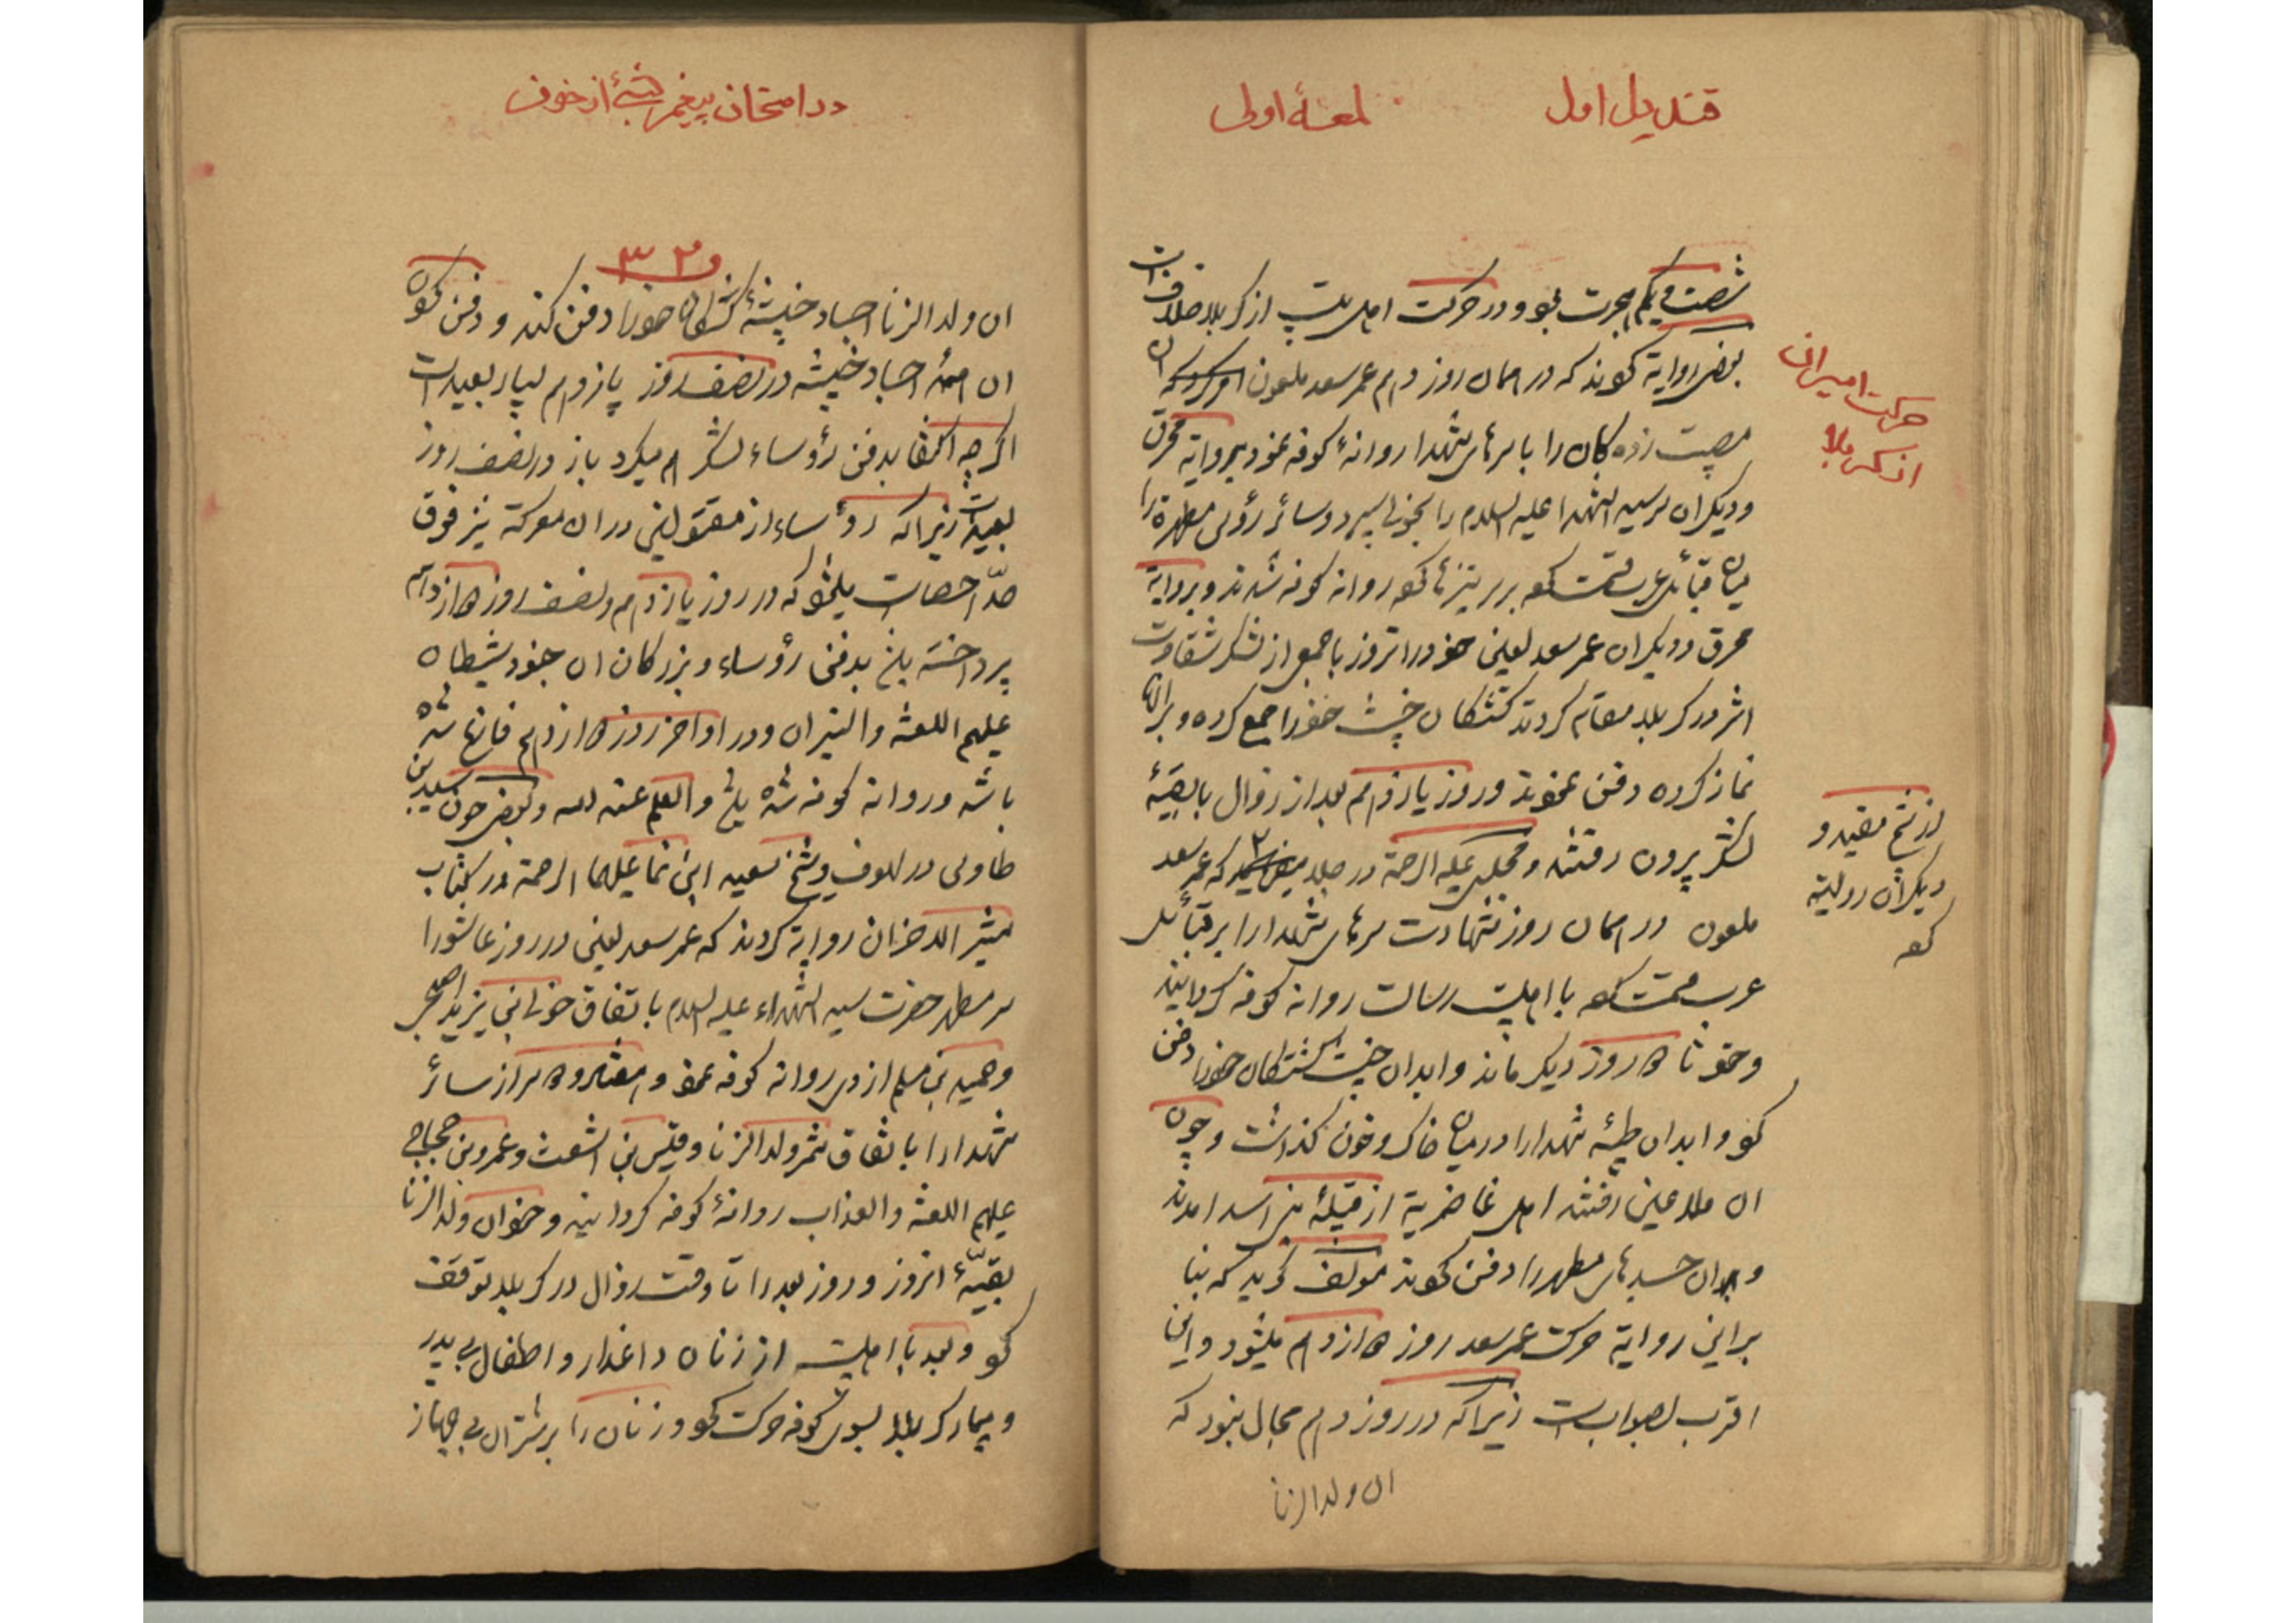 قندیل اول
لمعهٔ اولی
شصت و یکم هجرت بود و در حرکت اهل بیت از کربلا خلافست
بعضی روایة کونند که در همان روز دهم عمر سعد ملعون
حرکت اسیران
از کربلا
مصیبت زده کان را با سرهای شهدا روانهٔ کوفه نمود بروایة محرق
و دیکران سر سید الشهدا علیه السلام را بخولی سپرد و سائر رؤس مطهره را
میان قبائل عرب قسمت کو بر سر نیزها کو روانه کوفه شدند و بروایة
محرق و دیکران عمر سعد لعین خود را انروز با جمعی از لشکر شقاوت
اثر در کربلا مقام کردند کشتکان خبیث خود را جمع کرده و بر انها
نماز کرده دفن نمودند و روز یازدهم بعد از زوال با بقیهٔ
لشکر بیرون رفتند و مجلسی علیه الرحمة در جلا که عمر سعد
از شیخ مفید و
دیکران روایة
کو
ملعون در همان روز شهادت سرهای شهدا را بر قبائل
عرب قسمت کو با اهلبیت رسالت روانه کوفه کردانید
و خود تا روز دیکر ماند و ابدان خبیث کشتکان خود را دفن
کو و ابدان طیبهٔ شهدا را در میان خاک و خون کذاشت و چون
ان ملاعین رفتند اهل غاضریة از قبیلهٔ بنی اسد امدند
و بران جسدهای مطهر را دفن کوند مؤلف کوید که بنا
بر این روایة حرکت عمر سعد روز دوازدهم میشود و این
اقرب بصواب است زیرا که در روز دهم مجال نبود که
ان ولد الزنا
در امتحان پیغمبر از خوف
۳۲
ان ولد الزنا اجساد خبیثهٔ کشتکان خود را دفن کند و دفن کون
ان همهٔ اجساد خبیثه در نصف روز یازدهم بسیار بعید است
اکرچه اکتفا بدفن رؤساء لشکر هم میکرد باز در نصف روز
بعید است زیرا که رؤساء از مقتولین در ان معرکة نیز فوق
حدّ احصاست یلخو که در روز یازدهم و نصف روز دوازدهم
پرداخته بلخ بدفن رؤساء و بزرکان ان جنود شیطان
علیهم اللعنة والنیران و در اواخر روز دوازدهم فارغ شده
باشد و روانه کوفه شده بلخ والعلم عند الله و بعضی چون سید بن
طاوس در لهوف و شیخ سعید ابن نما علیهما الرحمة در کتاب
مثیر الاحزان روایة کردند که عمر سعد لعین در روز عاشورا
سر مطهر حضرت سید الشهداء علیه السلام با تفاق خولی بن یزید اصبحی
و حمید بن مسلم ازدی روانه کوفه نمود و هفتاد و دو سر از سائر
شهدا را با تفاق شمر ولد الزنا و قیس بن اشعث و عمرو بن حجاج
علیهم اللعنة والعذاب روانهٔ کوفه کردانید و خود ان ولد الزنا
بقیّهٔ انروز و روز بعد را تا وقت زوال در کربلا توقف
کو و بعد با اهلبیت از زنان داغدار و اطفال بی پدر
و بیمار کربلا بسوی کوفه حرکت کو و زنان را بر شتران بی جهاز